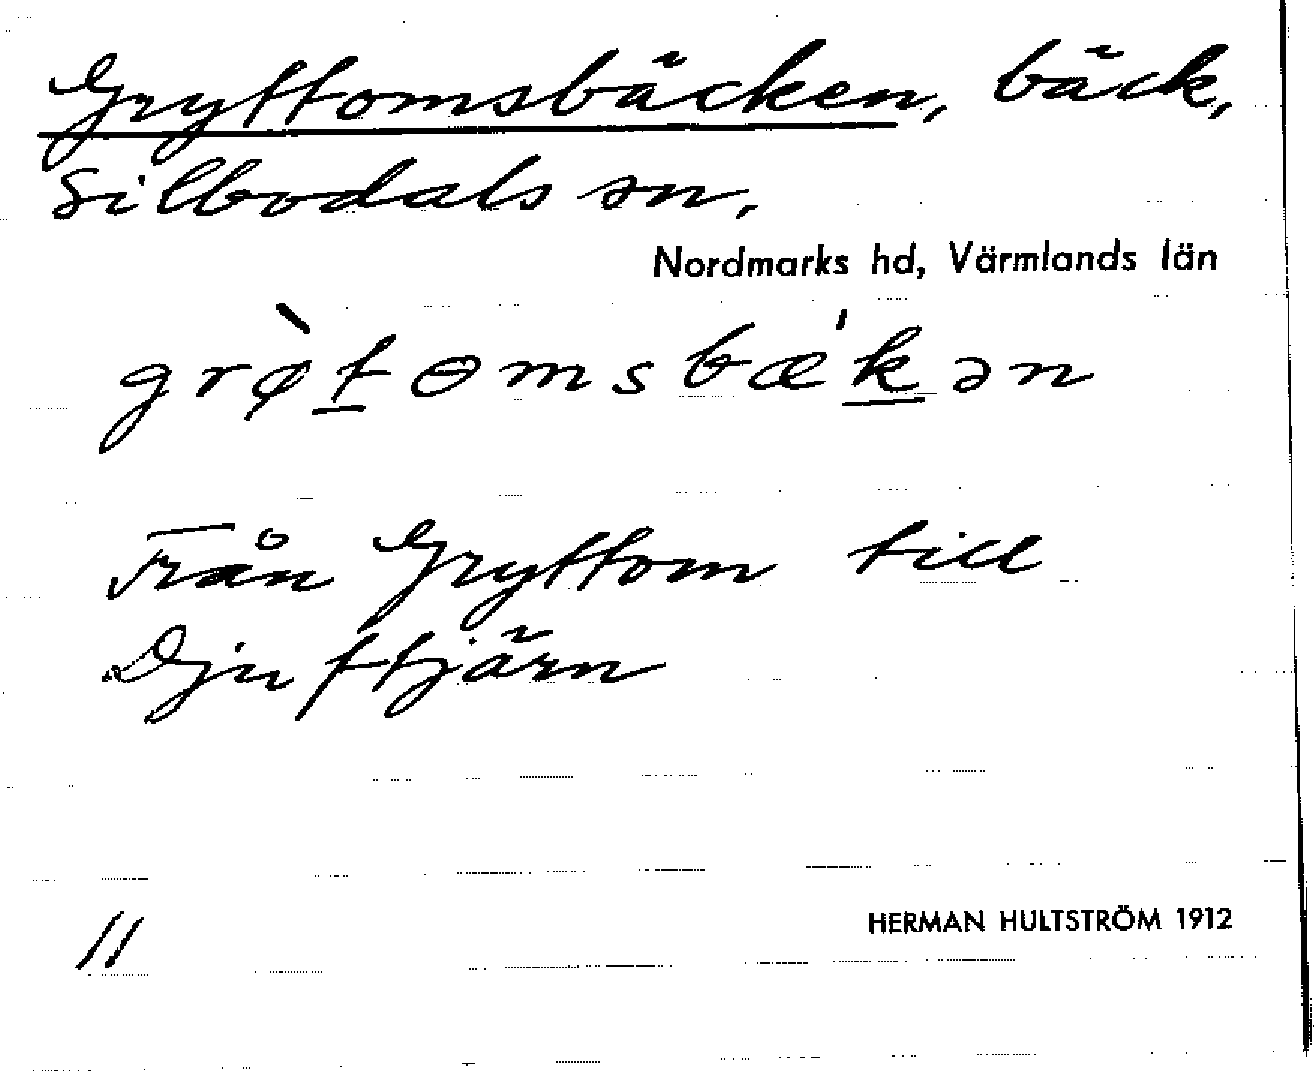 Gryttomsbäcken, bäck,
Silbodals sn,
Nordmarks hd, Värmlands län
grø̀tɵmsbæ'kən
Från Gryttom till
Djuptjärn
11
HERMAN HULTSTRÖM 1912